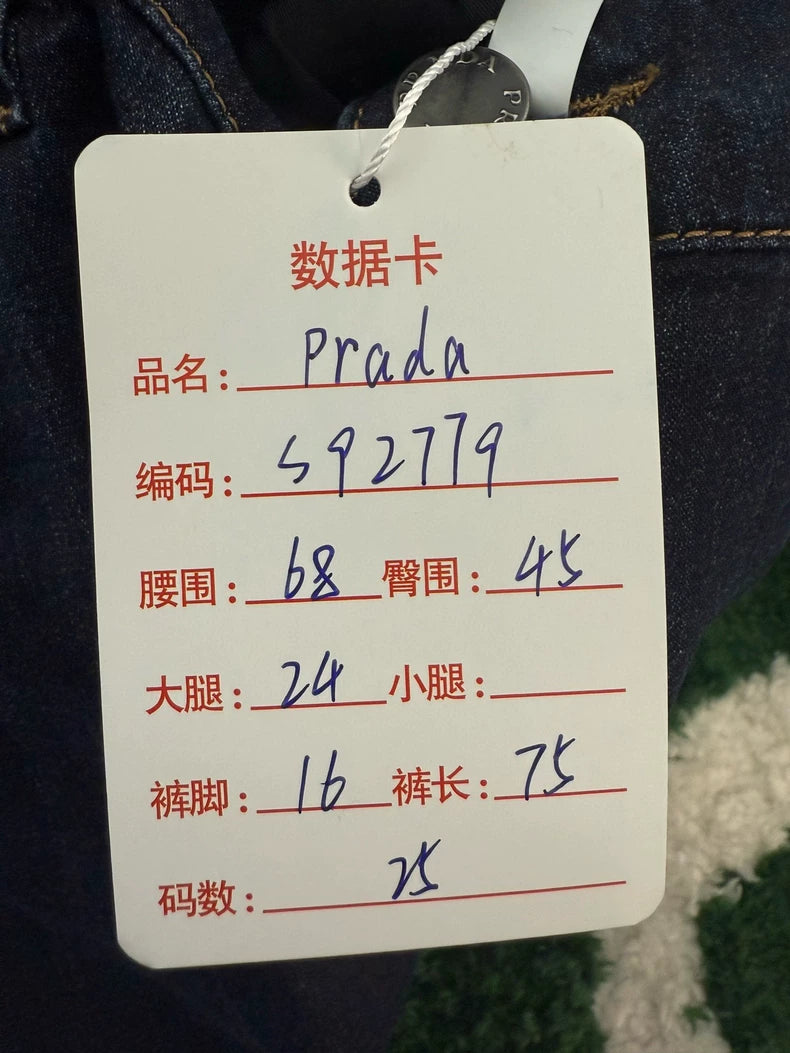 数据卡
品名: Prada
编码: S92779
腰围: 68 臀围: 45
大腿: 24 小腿:
裤脚: 16 裤长: 75
码数: 25